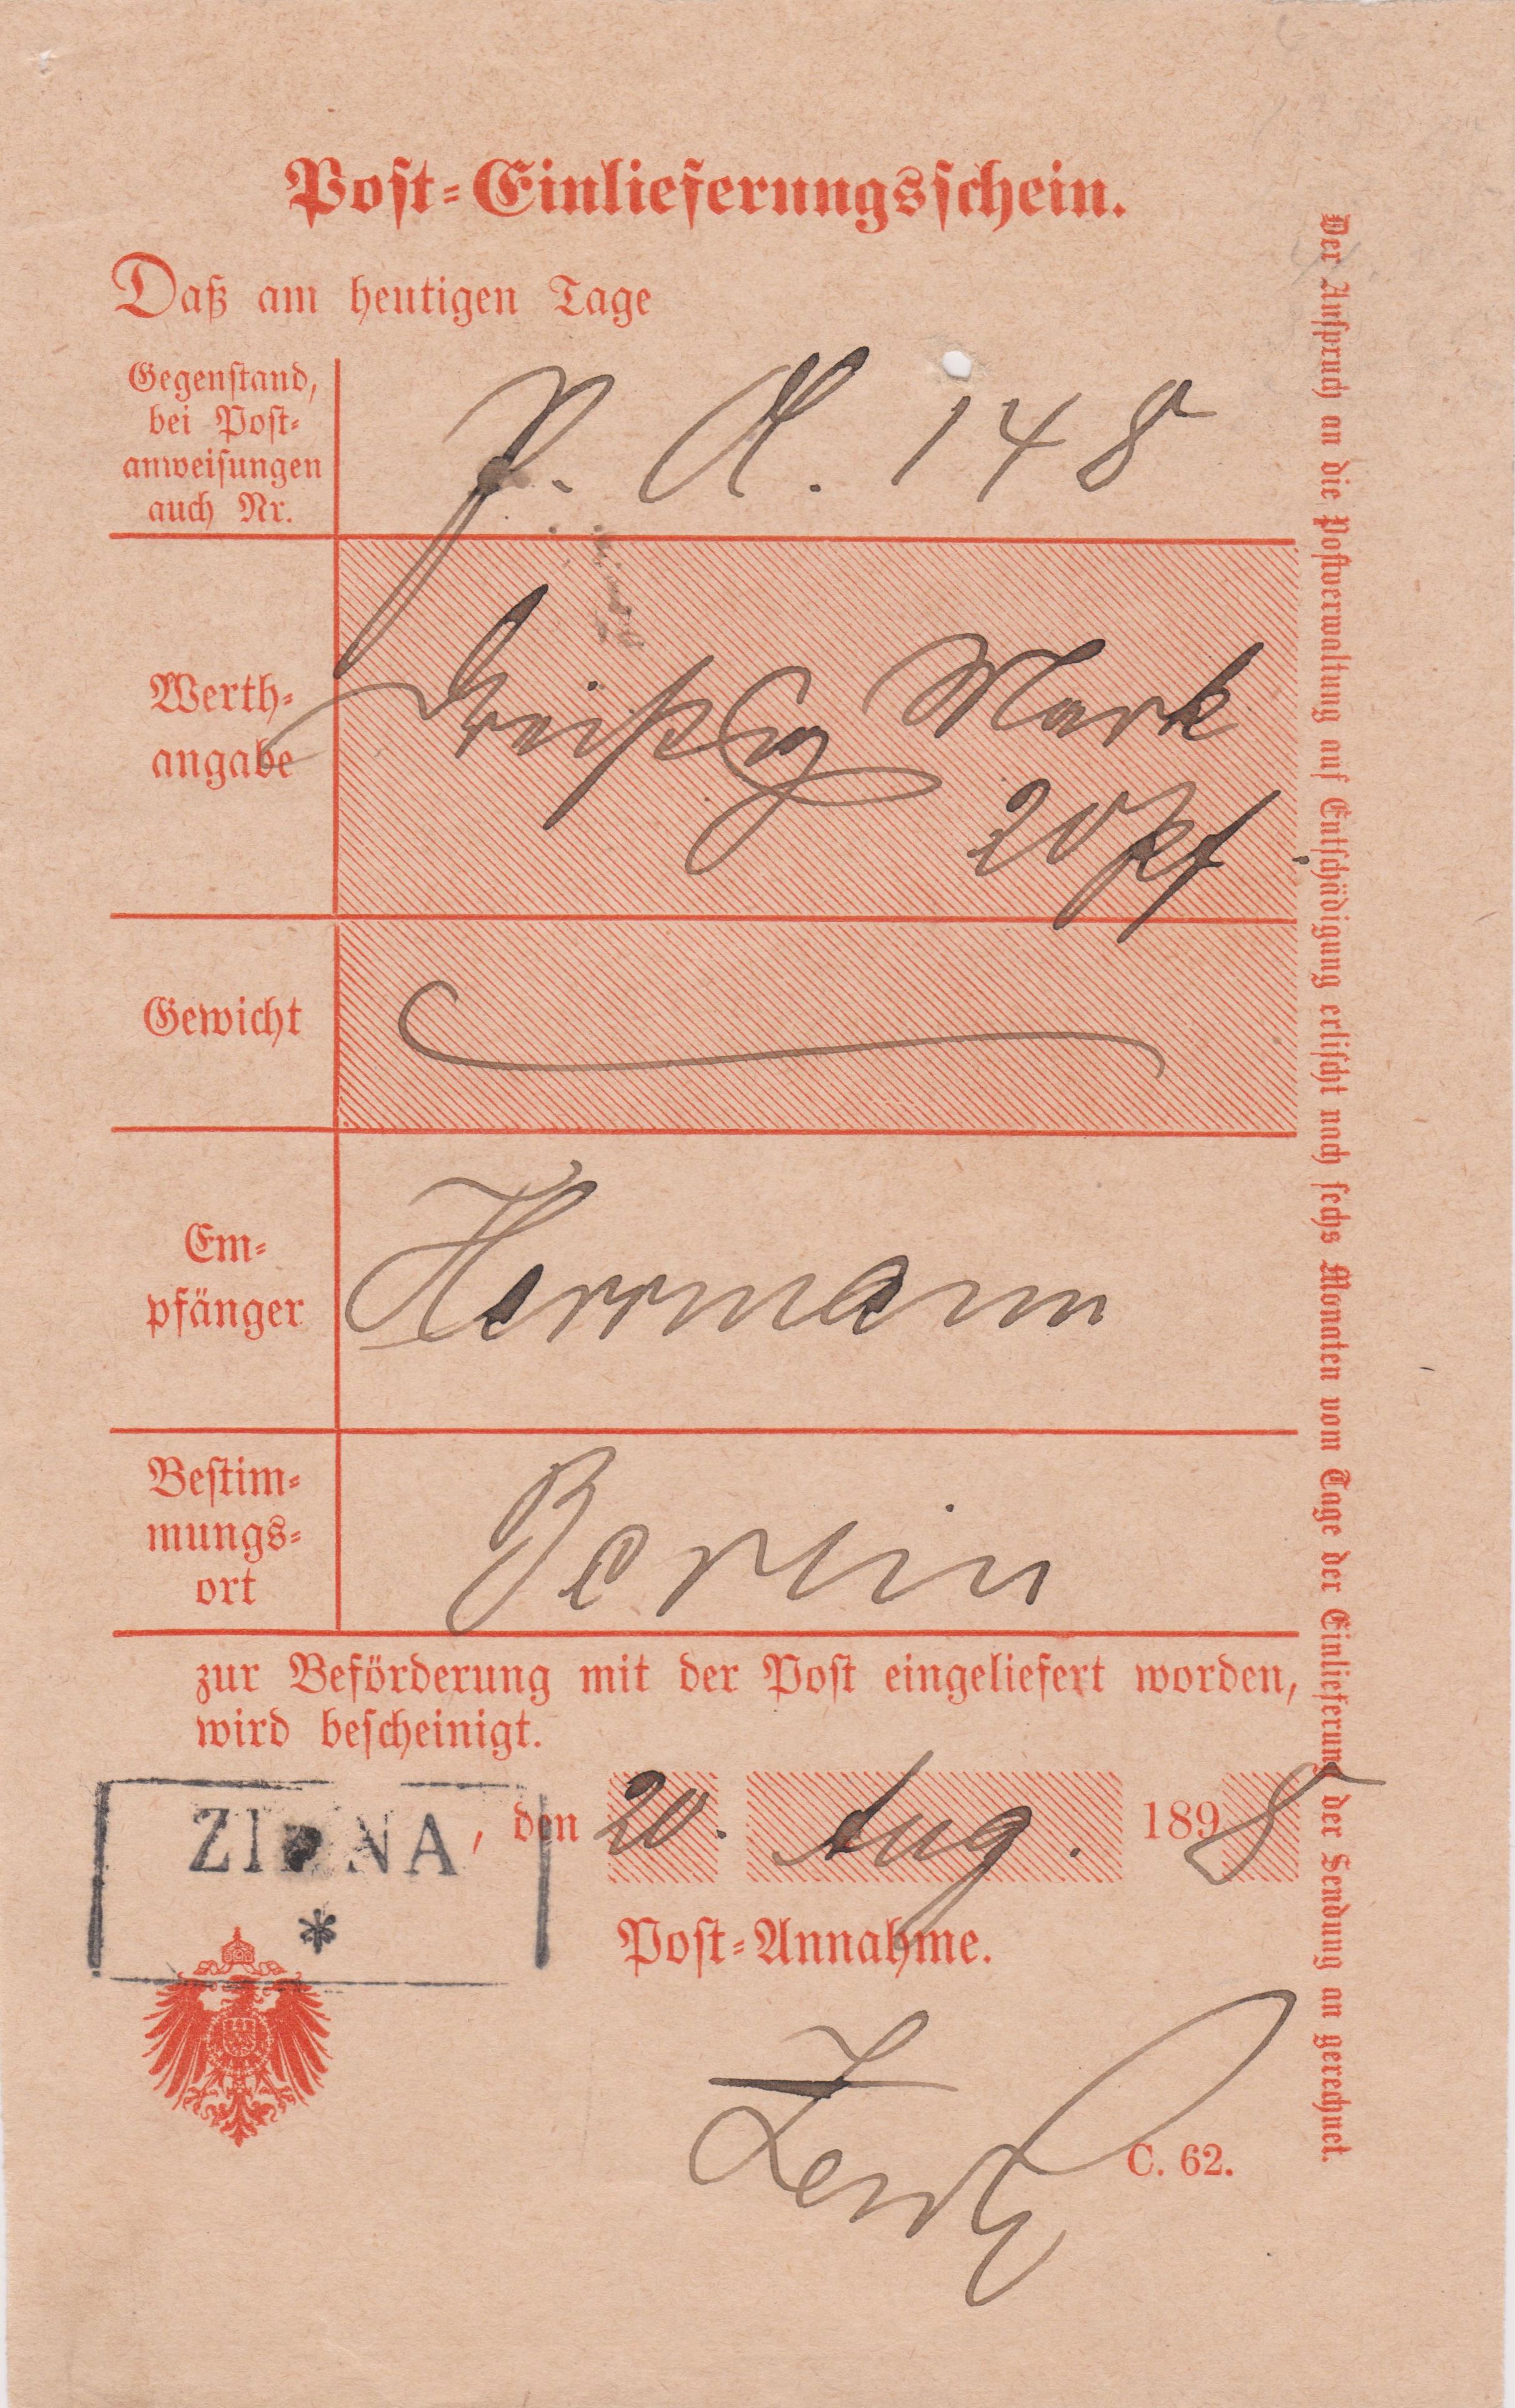 Post-Einlieferungsschein.
Daß am heutigen Tage
Gegenstand,
bei Post-
anweisungen
auch Nr.
P. A. 148
Werth-
angabe
Dreißig Mark
20 Pf
Gewicht
Em-
pfänger
Herrmann
Bestim-
mungs-
ort
Berlin
zur Beförderung mit der Post eingeliefert worden,
wird bescheinigt.
, den 20. Aug. 1898
Post-Annahme.
C. 62.
Der Anspruch an die Postverwaltung auf Entschädigung erlischt nach sechs Monaten vom Tage der Einlieferung der Sendung an gerechnet.